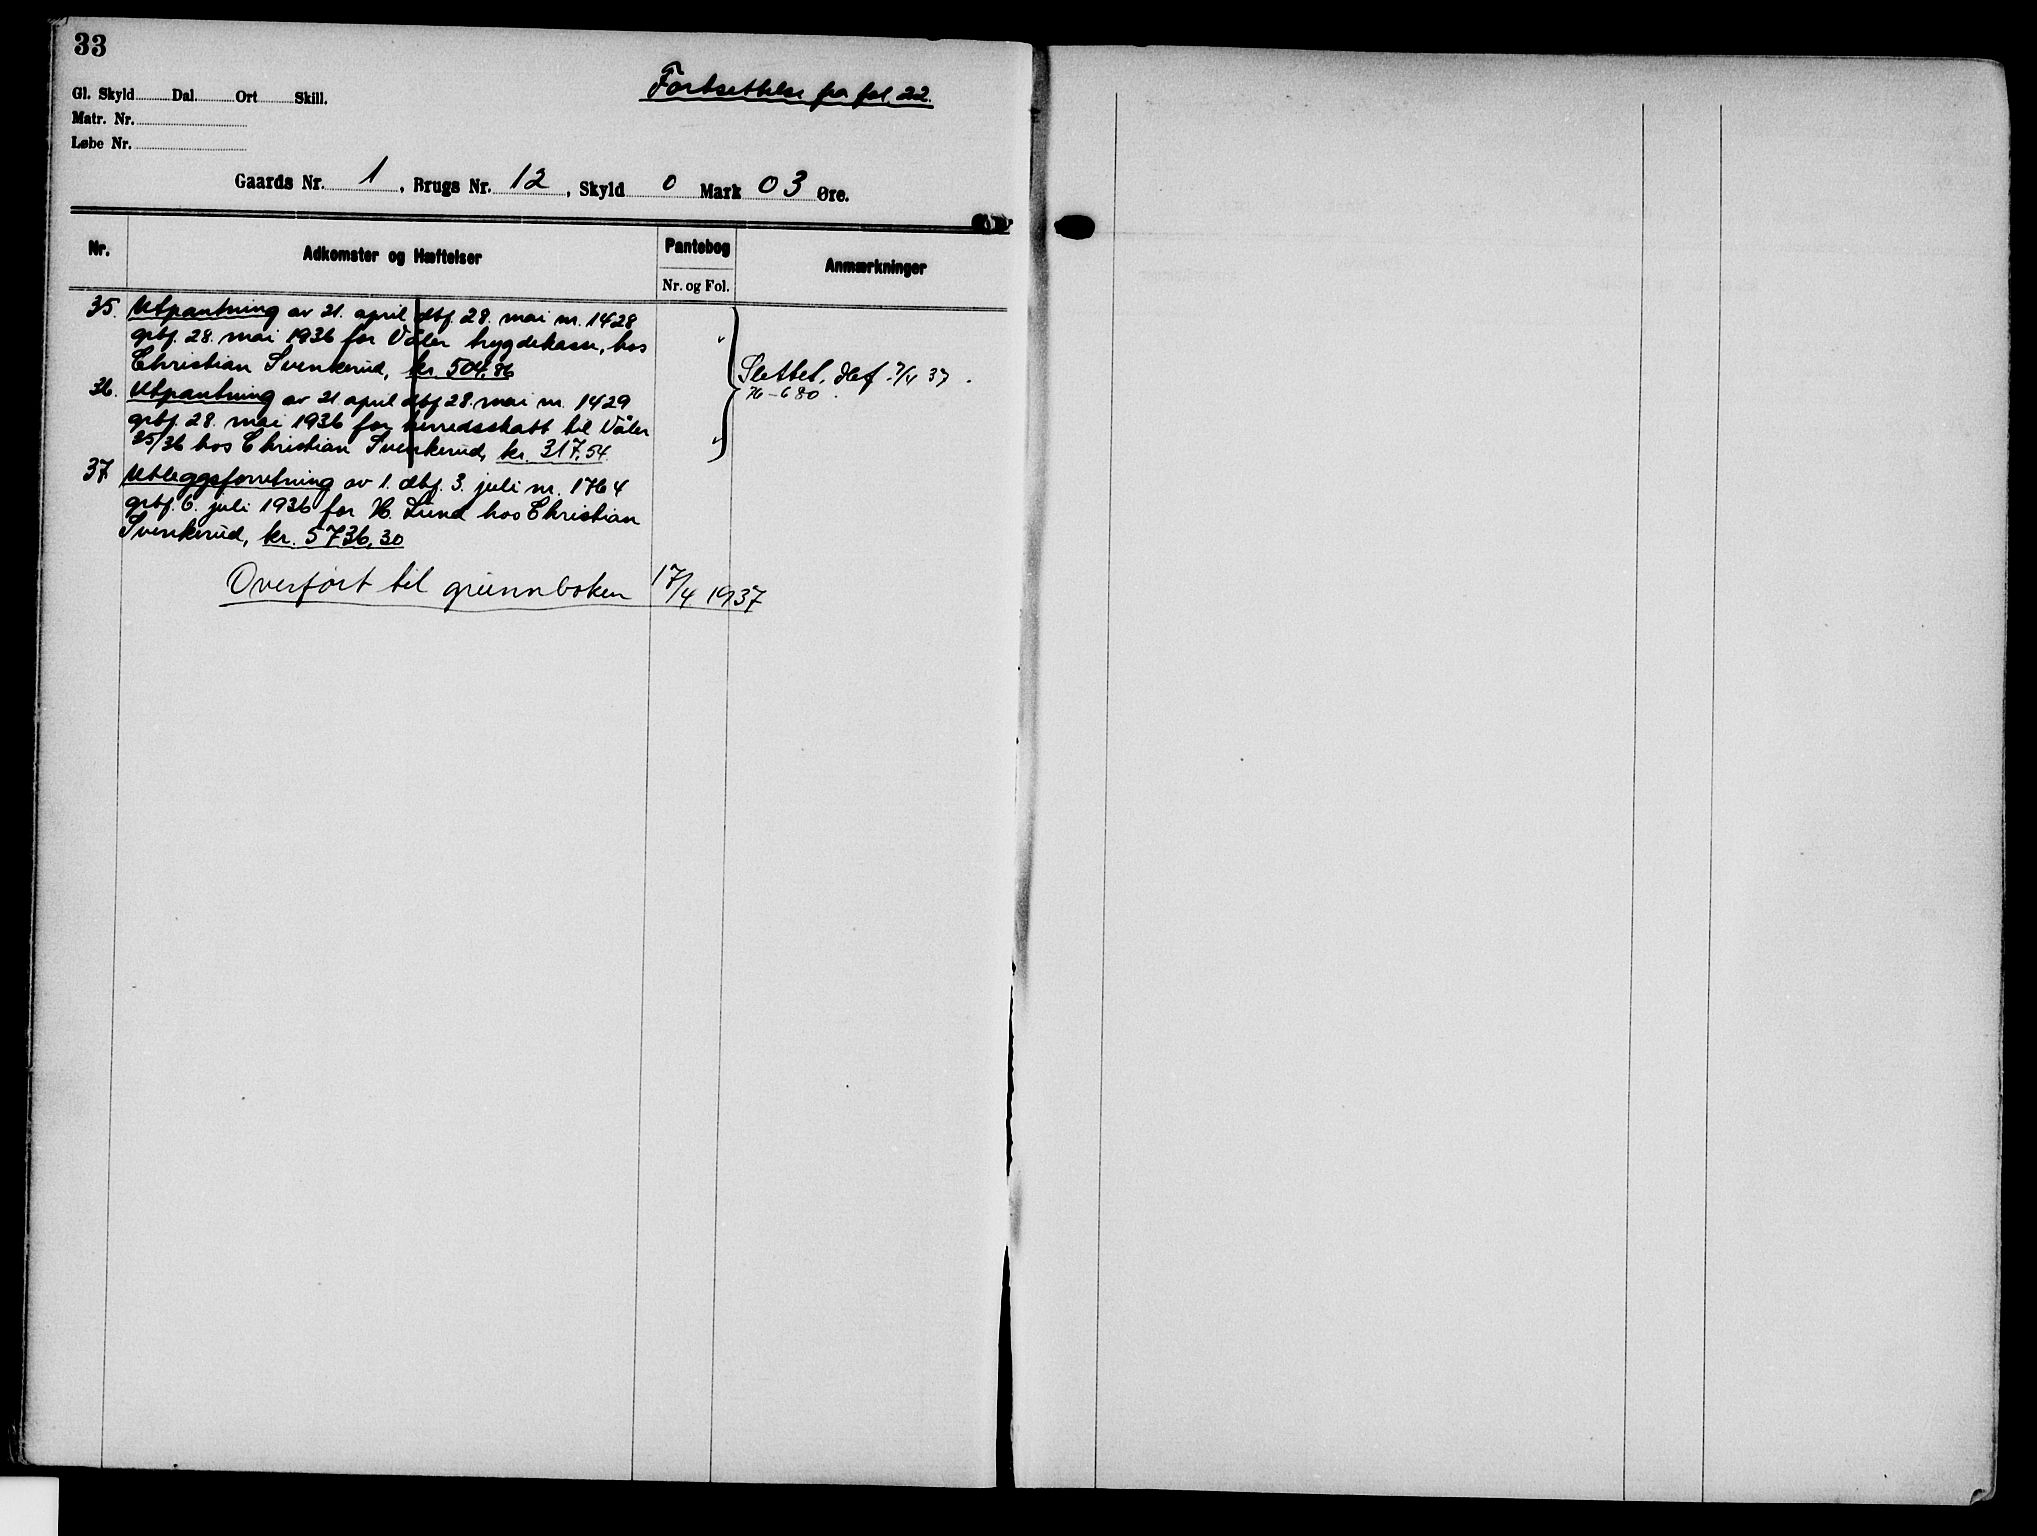 33
Fortsettelse fra fol. 22.
Gl. Skyld Dal. Ort Skill.
Matr. Nr.
Løbe Nr.
Gaards Nr. 1, Brugs Nr. 12, Skyld 0 Mark 03 Øre.
Nr. Adkomster og Hæftelser Pantebog Anmærkninger
Nr. og Fol.
35. Utpantning av 21. april dbf. 28. mai nr. 1428
grbf. 28. mai 1936 for Våler trygdekasse, hos
Christian Svenkerud, kr. 504,86
Slettet. dbf. 7/4 37.
H-680.
36. Utpantning av 21. april dbf 28. mai nr. 1429
grbf. 28. mai 1936 for herredsskatt til Våler
35/36 hos Christian Svenkerud, kr. 317,54
37. Utleggsforretning av 1. dbf. 3. juli nr. 1764
grbf. 6. juli 1936 for H. Lund hos Christian
Svenkerud, kr. 5736,30
Overført til grunnboken 17/4 1937